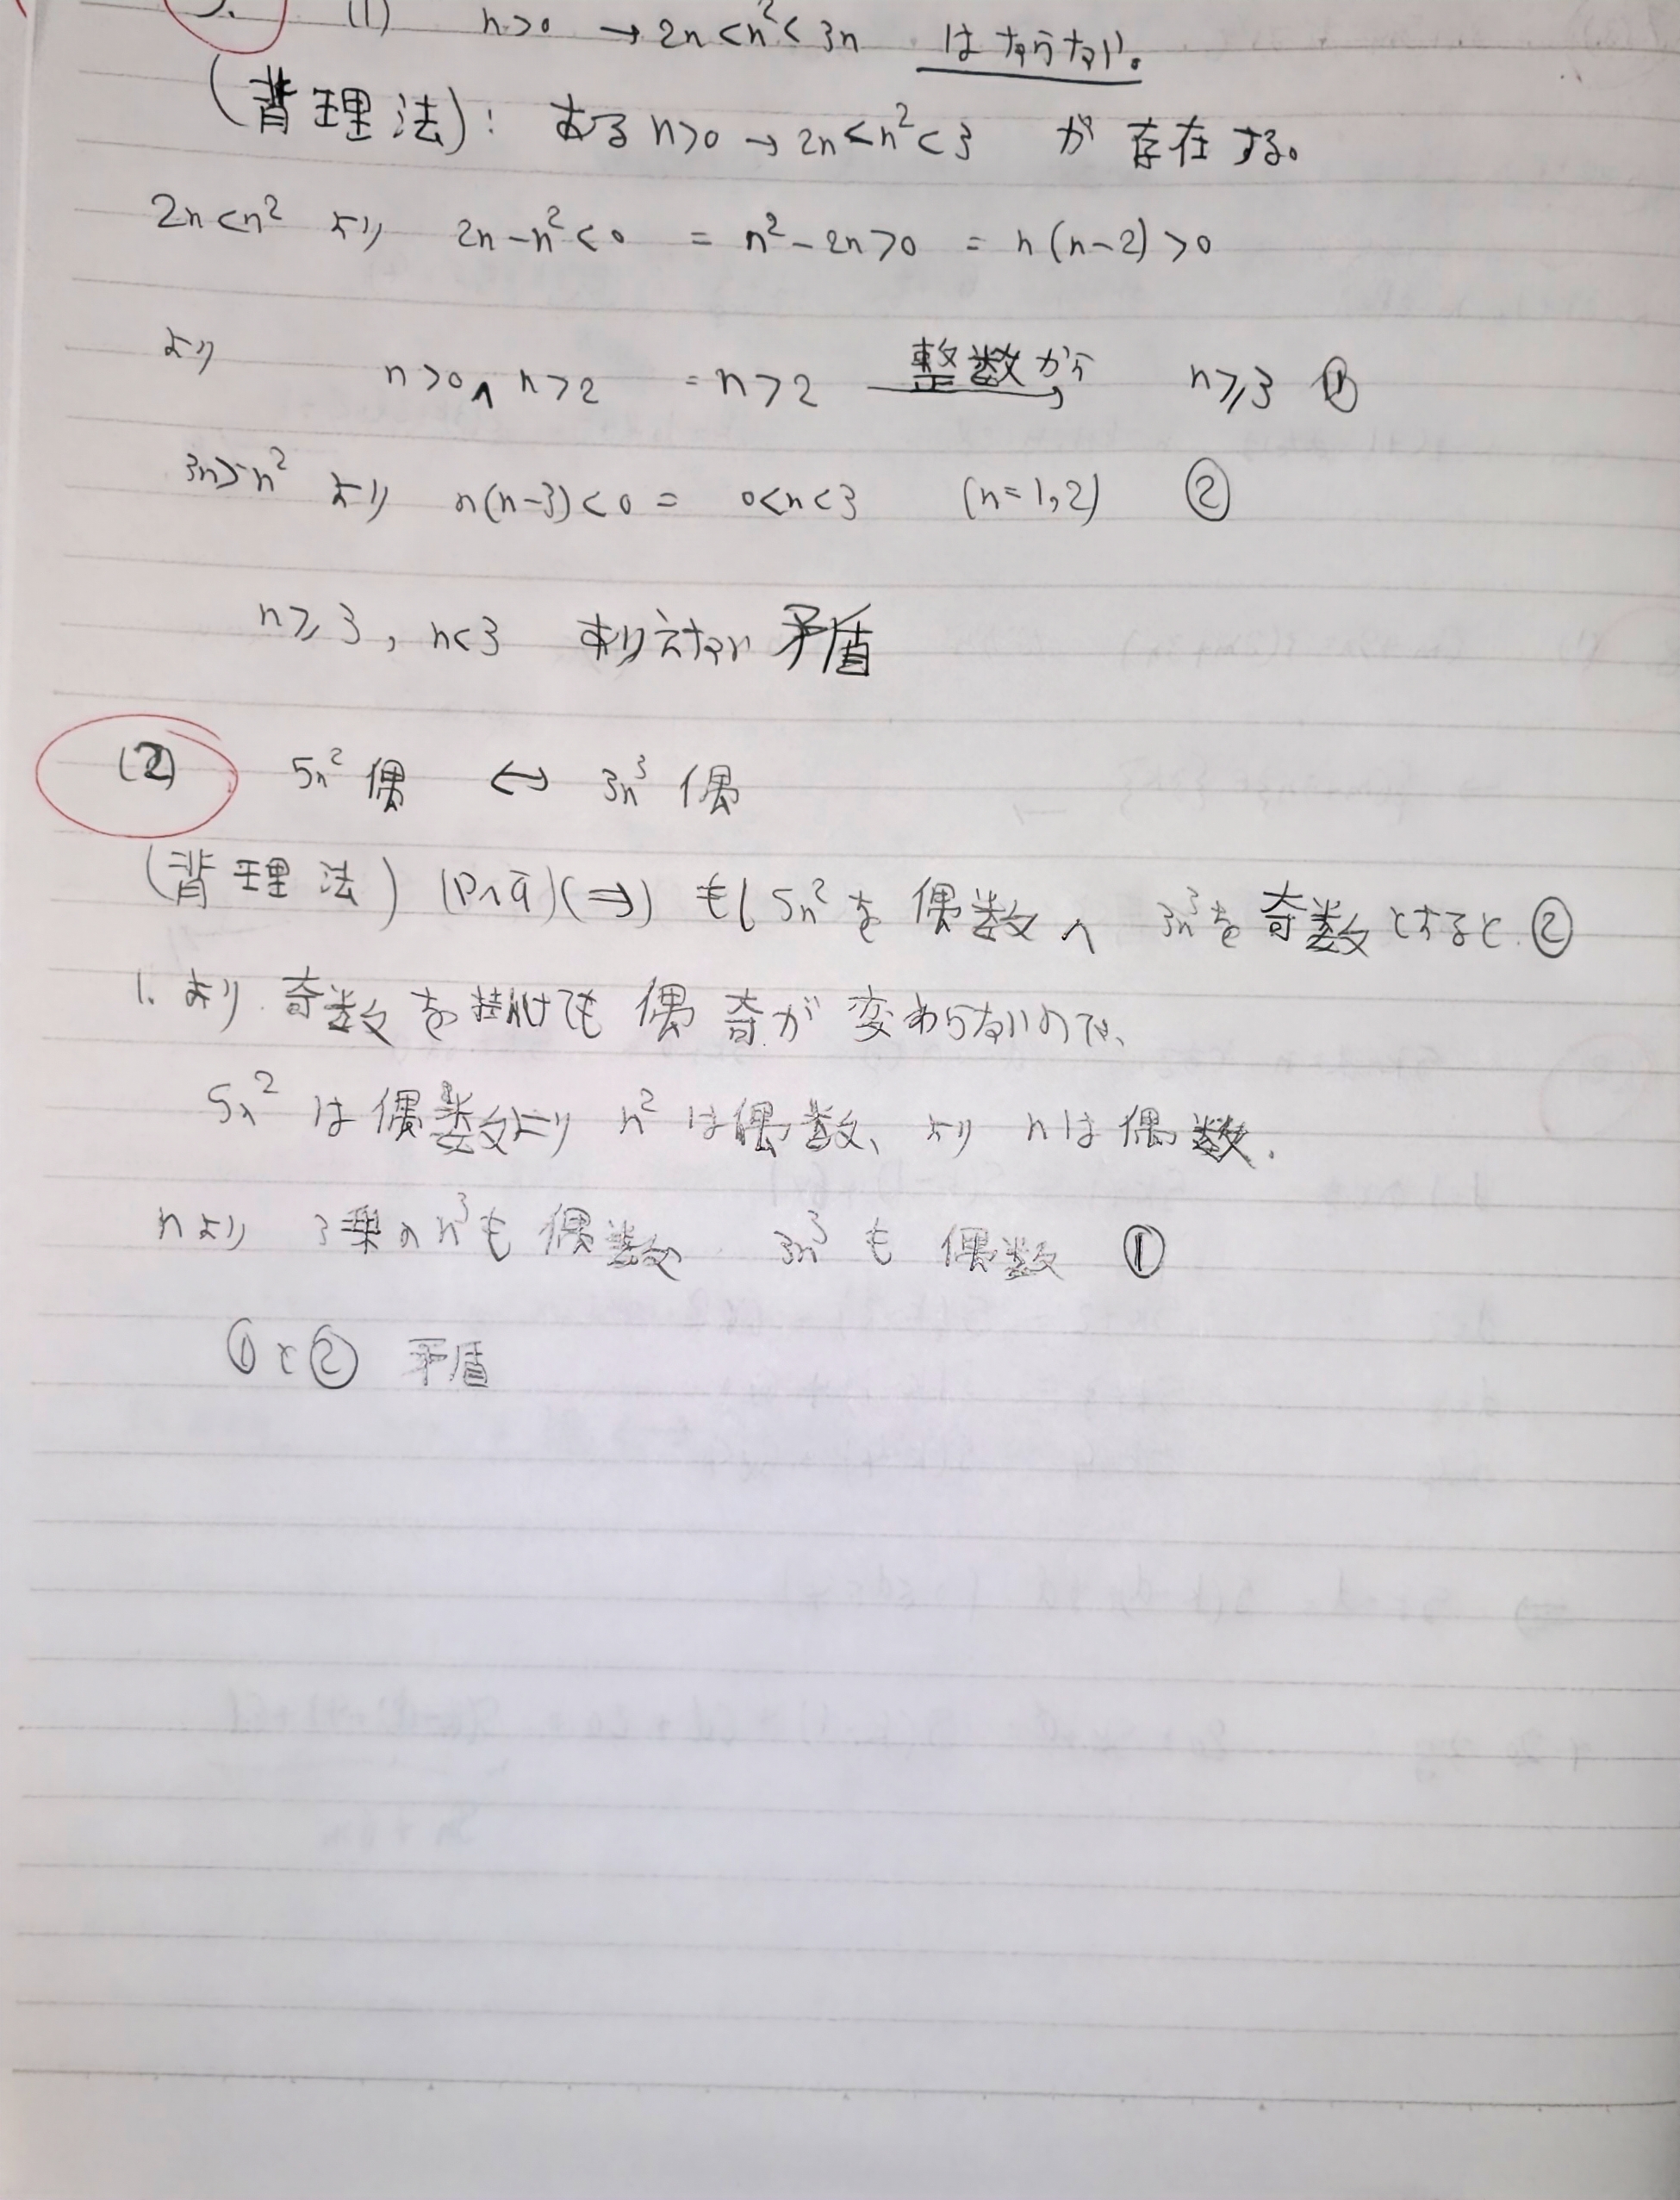 (1) n>0 → 2n<n²<3n はならない。
(背理法): ある n>0 → 2n<n²<3 が存在する。
2n<n² より 2n-n²<0 = n²-2n>0 = n(n-2)>0
より n>0 ∧ n>2 = n>2 整数から→ n≥3 ①
3n>n² より n(n-3)<0 = 0<n<3 (n=1,2) ②
n≥3, n<3 あり立ない 矛盾
(2) 5n² 偶 ↔ 3n³ 偶
(背理法) (P∧q̄)(⇒) もし 5n²を偶数 ∧ 3n³を奇数とすると ②
1. より 奇数を掛けても 偶奇が変わらないので、
5n² は偶数より n² は偶数、より nは偶数.
nより 3乗のn³も偶数 3n³も偶数 ①
①と② 矛盾